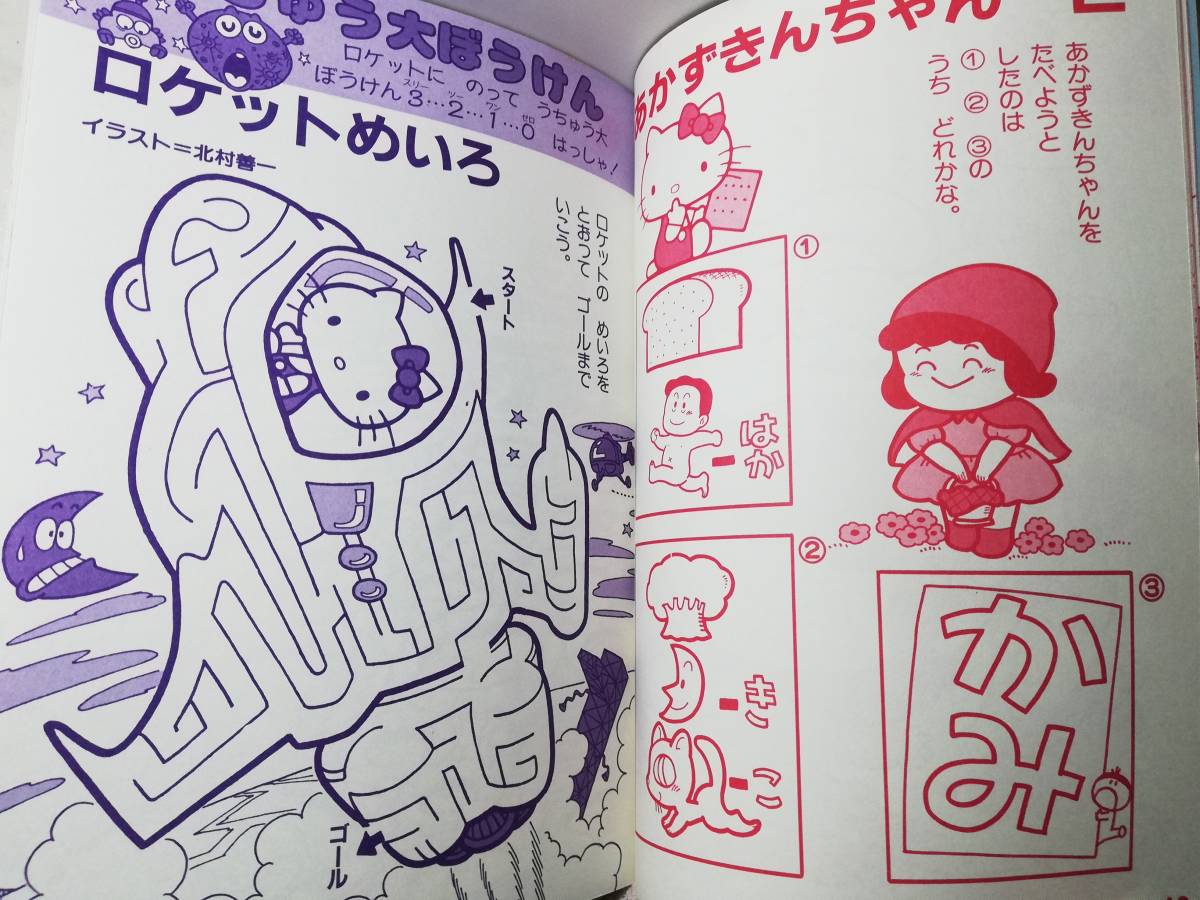 ちゅう大ぼうけん
ロケットに のって うちゅう大
ぼうけん3…2…1…0 はっしゃ！
スリー ツー ワン ゼロ
ロケットめいろ
イラスト＝北村善一
ロケットの めいろを
とおって ゴールまで
いこう。
スタート
ゴール
あかずきんちゃん
あかずきんちゃん
あかずきんちゃんを
たべようと
したのは
① ② ③の
うち どれかな。
①
ーはか
②
ーき
ーこ
③
かみ